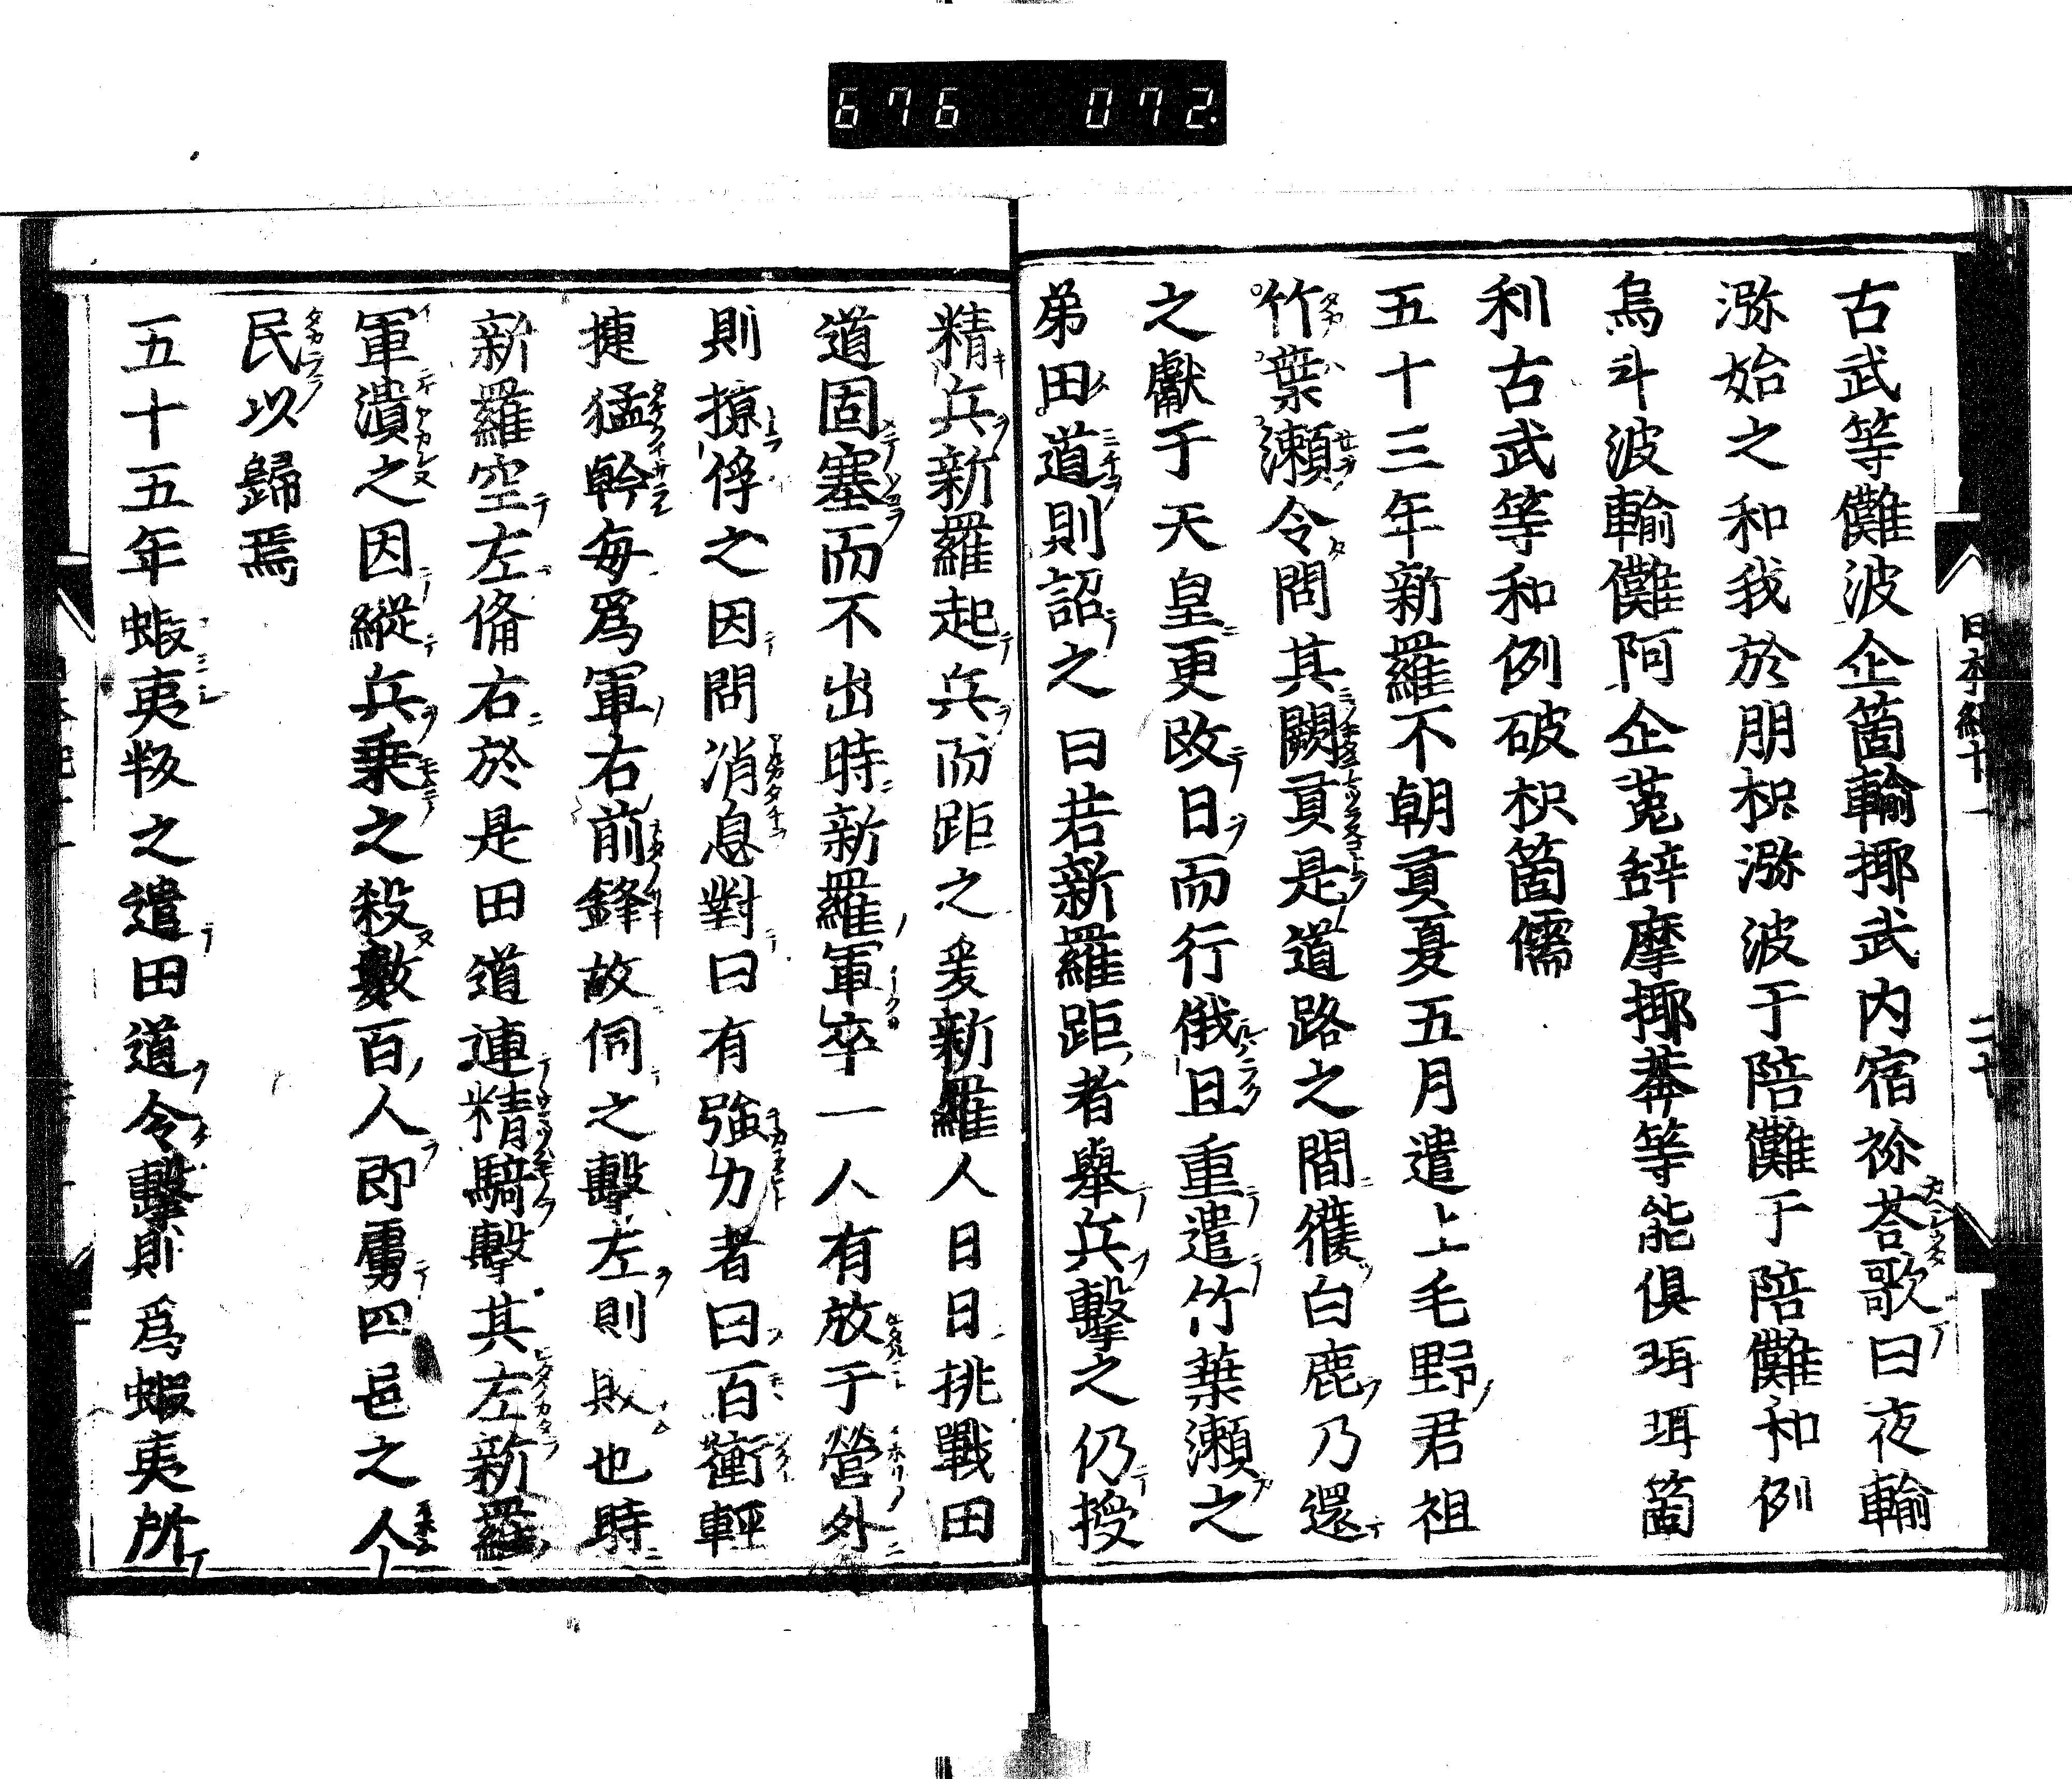 676 072.
古武等儺波企箇輸揶武内宿祢荅歌曰夜輸
瀰始之和我於朋枳瀰波于陪儺于陪儺和例
烏斗波輸儺阿企菟辭摩揶莽等能俱珥珥箇
利古武等和例破枳箇儒
五十三年新羅不朝貢夏五月遣上毛野君祖
竹葉瀨令問其闕貢是道路之間獲白鹿乃還
之獻于天皇更改日而行俄且重遣竹葉瀨之
弟田道則詔之曰若新羅距者舉兵擊之仍授
精兵新羅起兵而距之爰新羅人日日挑戰田
道固塞而不出時新羅軍卒一人有放于營外
則掠俘之因問消息對曰有強力者曰百衝輕
捷猛幹每爲軍右前鋒故伺之擊左則敗也時
新羅空左俻右於是田道連精騎擊其左新羅
軍潰之因縱兵乘之殺數百人即虜四邑之人
民以歸焉
五十五年蝦夷叛之遣田道令擊則爲蝦夷所